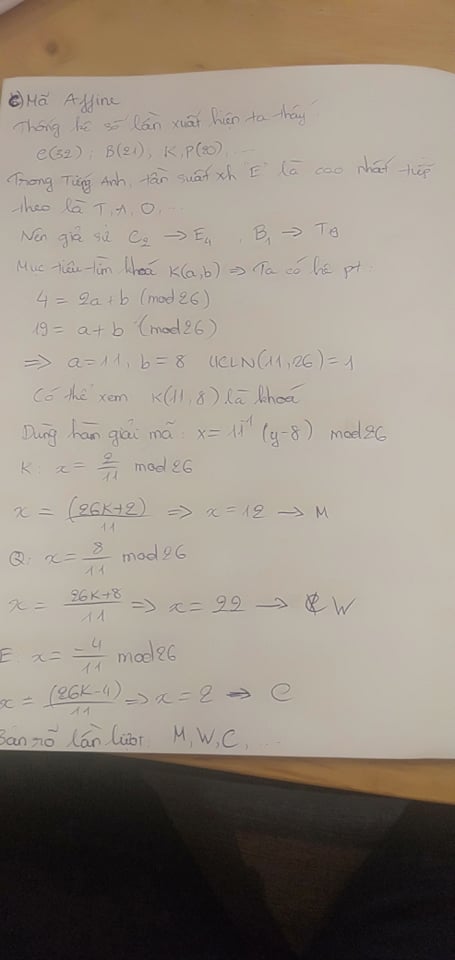 c) Mã Affine
Thống kê số lần xuất hiện ta thấy:
C(32); B(21); K,P(20), ...
Trong Tiếng Anh, tần suất xh "E" là cao nhất tiếp
theo là T, A, O, ...
Nên giả sử C₂ → E₄ , B₁ → T₁₉
Mục tiêu tìm khoá K(a,b) ⇒ Ta có hệ pt:
4 = 2a + b (mod 26)
19 = a + b (mod 26)
⇒ a = 11, b = 8 UCLN(11,26) = 1
Có thể xem K(11,8) là khoá
Dùng hàm giải mã: x = 11⁻¹ (y-8) mod 26
K: x = 2/11 mod 26
x = (26K+2)/11 ⇒ x = 12 → M
Q: x = 8/11 mod 26
x = 26K+8/11 ⇒ x = 22 → W
E: x = -4/11 mod 26
x = (26K-4)/11 ⇒ x = 2 → C
Bản rõ lần lượt: M, W, C, ...